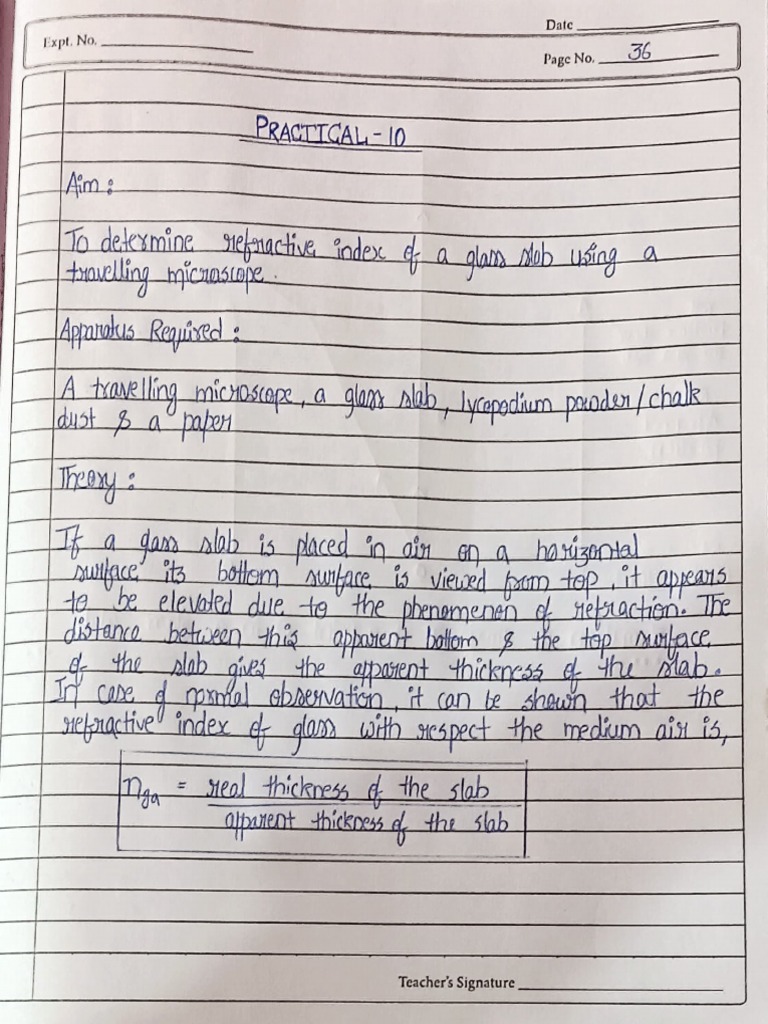 Date
Expt. No.
Page No. 36
PRACTICAL-10
Aim :
To determine refractive index of a glass slab using a
travelling microscope.
Apparatus Required :
A travelling microscope, a glass slab, lycopodium powder/chalk
dust & a paper
Theory :
If a glass slab is placed in air on a horizontal
surface its bottom surface is viewed from top, it appears
to be elevated due to the phenomenon of refraction. The
distance between this apparent bottom & the top surface
of the slab gives the apparent thickness of the slab.
In case of normal observation, it can be shown that the
refractive index of glass with respect the medium air is,
nga = real thickness of the slab
apparent thickness of the slab
Teacher's Signature